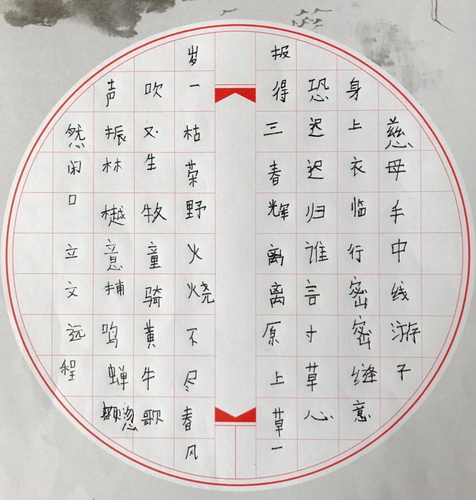 慈母手中线游子
身上衣临行密密缝意
恐迟迟归谁言寸草心
报得三春辉离离原上草一
岁一枯荣野火烧不尽春风
吹又生牧童骑黄牛歌
声振林樾意捕鸣蝉忽
然闭口立文远程